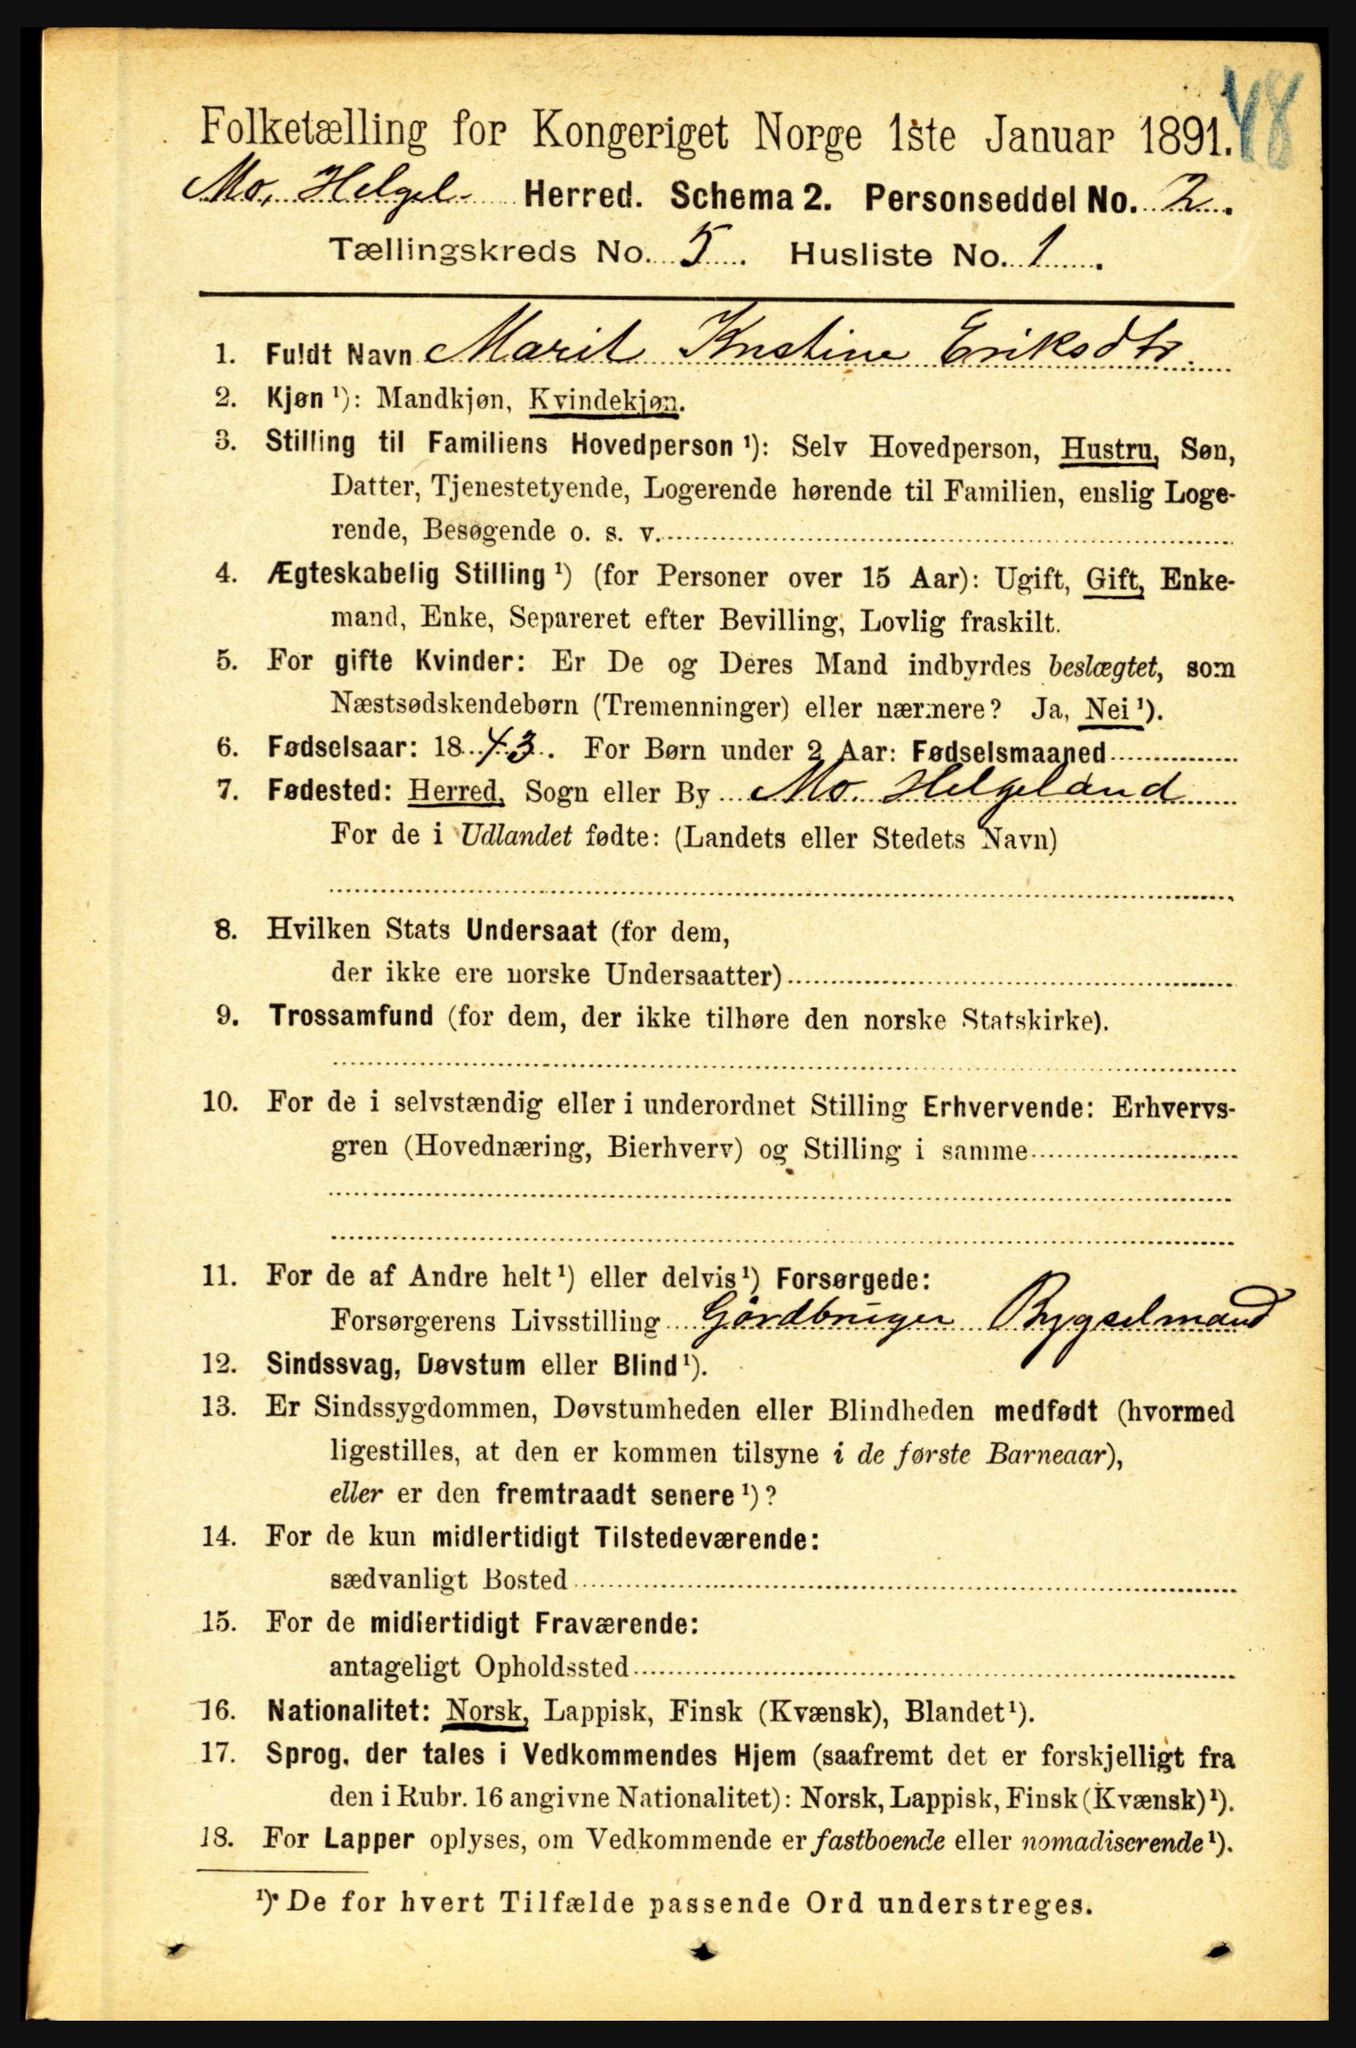 48
Folketælling for Kongeriget Norge 1ste Januar 1891.
Mo, Helgel. Herred. Schema 2. Personseddel No. 2.
Tællingskreds No. 5. Husliste No. 1.
1. Fuldt Navn Marit Kristine Eriksdtr.
2. Kjøn ¹): Mandkjøn, Kvindekjøn.
3. Stilling til Familiens Hovedperson ¹): Selv Hovedperson, Hustru, Søn,
Datter, Tjenestetyende, Logerende hørende til Familien, enslig Loge-
rende, Besøgende o. s. v.
4. Ægteskabelig Stilling ¹) (for Personer over 15 Aar): Ugift, Gift, Enke-
mand, Enke, Separeret efter Bevilling, Lovlig fraskilt.
5. For gifte Kvinder: Er De og Deres Mand indbyrdes beslægtet, som
Næstsødskendebørn (Tremenninger) eller nærmere? Ja, Nei ¹).
6. Fødselsaar: 1843. For Børn under 2 Aar: Fødselsmaaned
7. Fødested: Herred, Sogn eller By Mo. Helgeland
For de i Udlandet fødte: (Landets eller Stedets Navn)
8. Hvilken Stats Undersaat (for dem,
der ikke ere norske Undersaatter)
9. Trossamfund (for dem, der ikke tilhøre den norske Statskirke).
10. For de i selvstændig eller i underordnet Stilling Erhvervende: Erhvervs-
gren (Hovednæring, Bierhverv) og Stilling i samme
11. For de af Andre helt ¹) eller delvis ¹) Forsørgede:
Forsørgerens Livsstilling Gårdbruger Bygselmand
12. Sindssvag, Døvstum eller Blind ¹).
13. Er Sindssygdommen, Døvstumheden eller Blindheden medfødt (hvormed
ligestilles, at den er kommen tilsyne i de første Barneaar),
eller er den fremtraadt senere ¹)?
14. For de kun midlertidigt Tilstedeværende:
sædvanligt Bosted
15. For de midlertidigt Fraværende:
antageligt Opholdssted
16. Nationalitet: Norsk, Lappisk, Finsk (Kvænsk), Blandet ¹).
17. Sprog, der tales i Vedkommendes Hjem (saafremt det er forskjelligt fra
den i Rubr. 16 angivne Nationalitet): Norsk, Lappisk, Finsk (Kvænsk) ¹).
18. For Lapper oplyses, om Vedkommende er fastboende eller nomadiserende ¹).
¹) De for hvert Tilfælde passende Ord understreges.